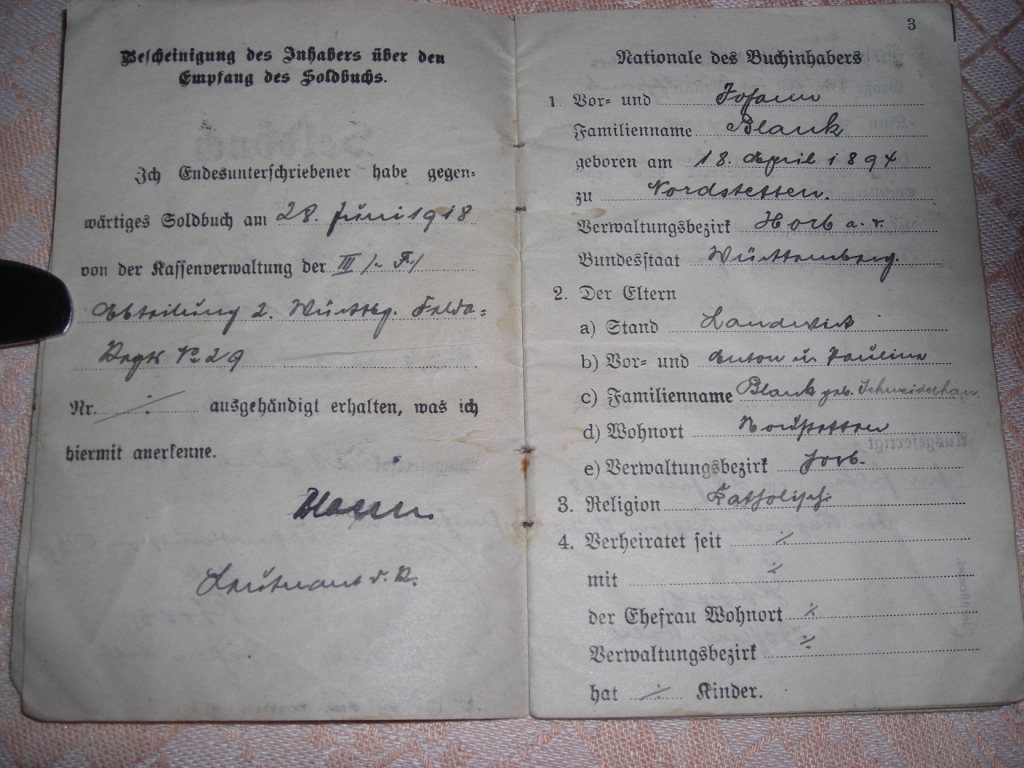 Bescheinigung des Inhabers über den
Empfang des Soldbuchs.
Ich Endesunterschriebener habe gegen-
wärtiges Soldbuch am 28. Juni 1918
von der Kassenverwaltung der III /- F/
Abteilung 2. Württbg. Felda-
Regts No 29
Nr. ausgehändigt erhalten, was ich
hiermit anerkenne.
Leutnant d. R.
3
Nationale des Buchinhabers
1. Vor- und Johann
Familienname Blank
geboren am 18. April 1894
zu Nordstetten.
Verwaltungsbezirk Horb a. N.
Bundesstaat Württemberg.
2. Der Eltern
a) Stand Landwirt
b) Vor- und Anton u. Pauline
c) Familienname Blank geb. Schneiderhan
d) Wohnort Nordstetten
e) Verwaltungsbezirk Horb.
3. Religion Katholisch.
4. Verheiratet seit ./.
mit ./.
der Ehefrau Wohnort ./.
Verwaltungsbezirk ./.
hat ./. Kinder.